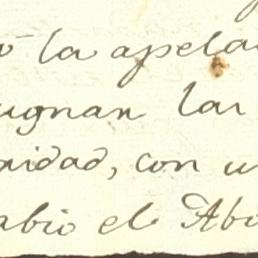 ó la apela
ugnan las
nidad, con u
abio el Abo